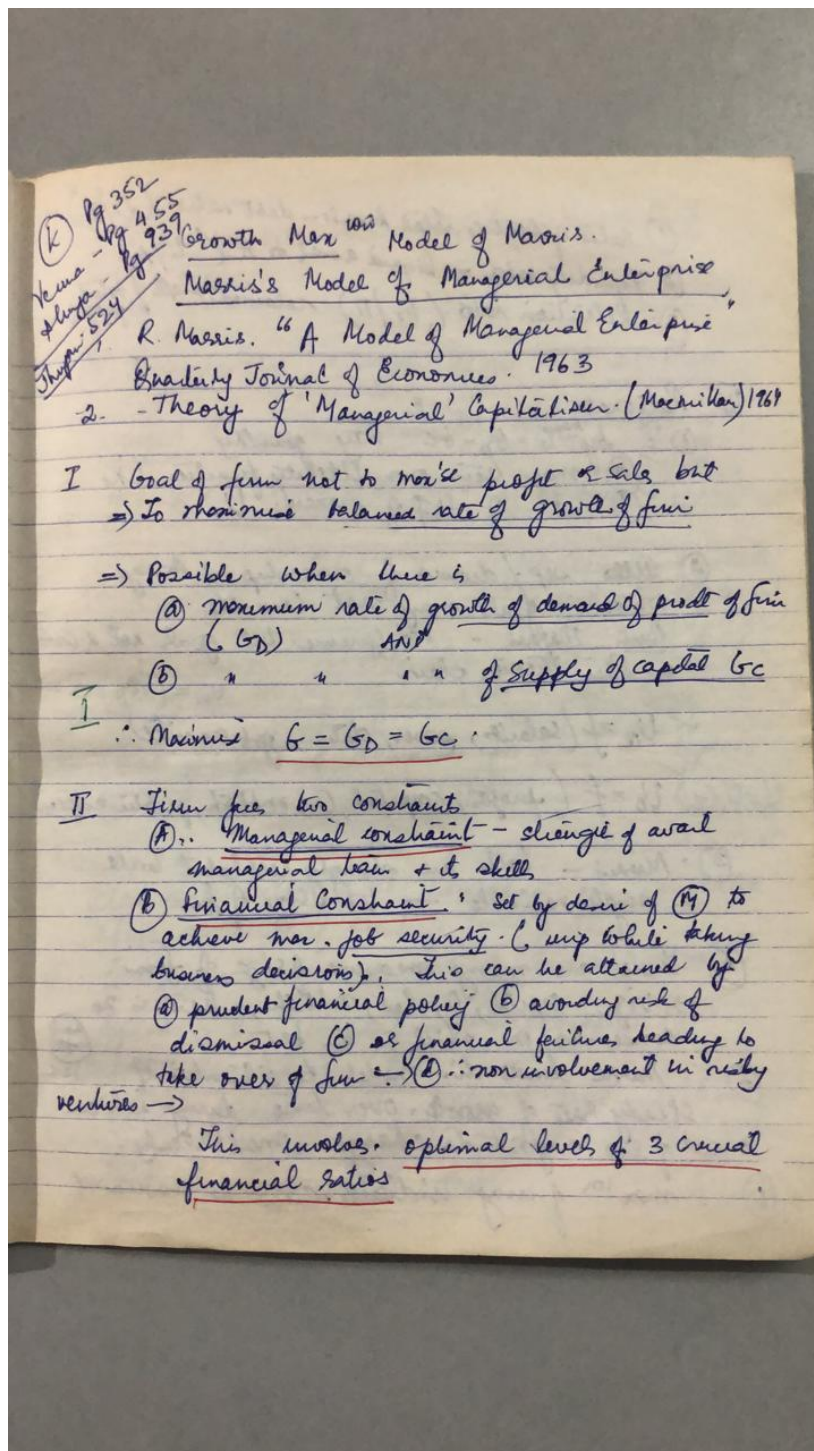 (K) Pg 352
Verma - Pg 455
Ahuja - Pg 939
Jhingan 524
Growth Max tion Model of Marris.
Marris's Model of Managerial Enterprise
1. R. Marris. "A Model of Managerial Enterprise"
Quarterly Journal of Economics. 1963
2. - Theory of 'Managerial' Capitalism. (Macmillan) 1964
I Goal of firm not to max'se profit or sales but
=> To maximise balanced rate of growth of firm
=> Possible when there is
(a) maximum rate of growth of demand of prodt of firm
(GD) AND
(b) " " " " of Supply of capital Gc
I
∴ Maximise G = GD = GC.
II Firm faces two constraints
(A). Managerial constraint - strength of avail
managerial team & its skills
(b) Financial Constraint : Set by desire of (M) to
achieve max. job security. ( while taking
business decisions). This can be attained by
(a) prudent financial policy (b) avoiding risk of
dismissal (c) or financial failures leading to
take over of firm -> (d) ∴ non involvement in risky
ventures ->
This involves. optimal levels of 3 crucial
financial ratios